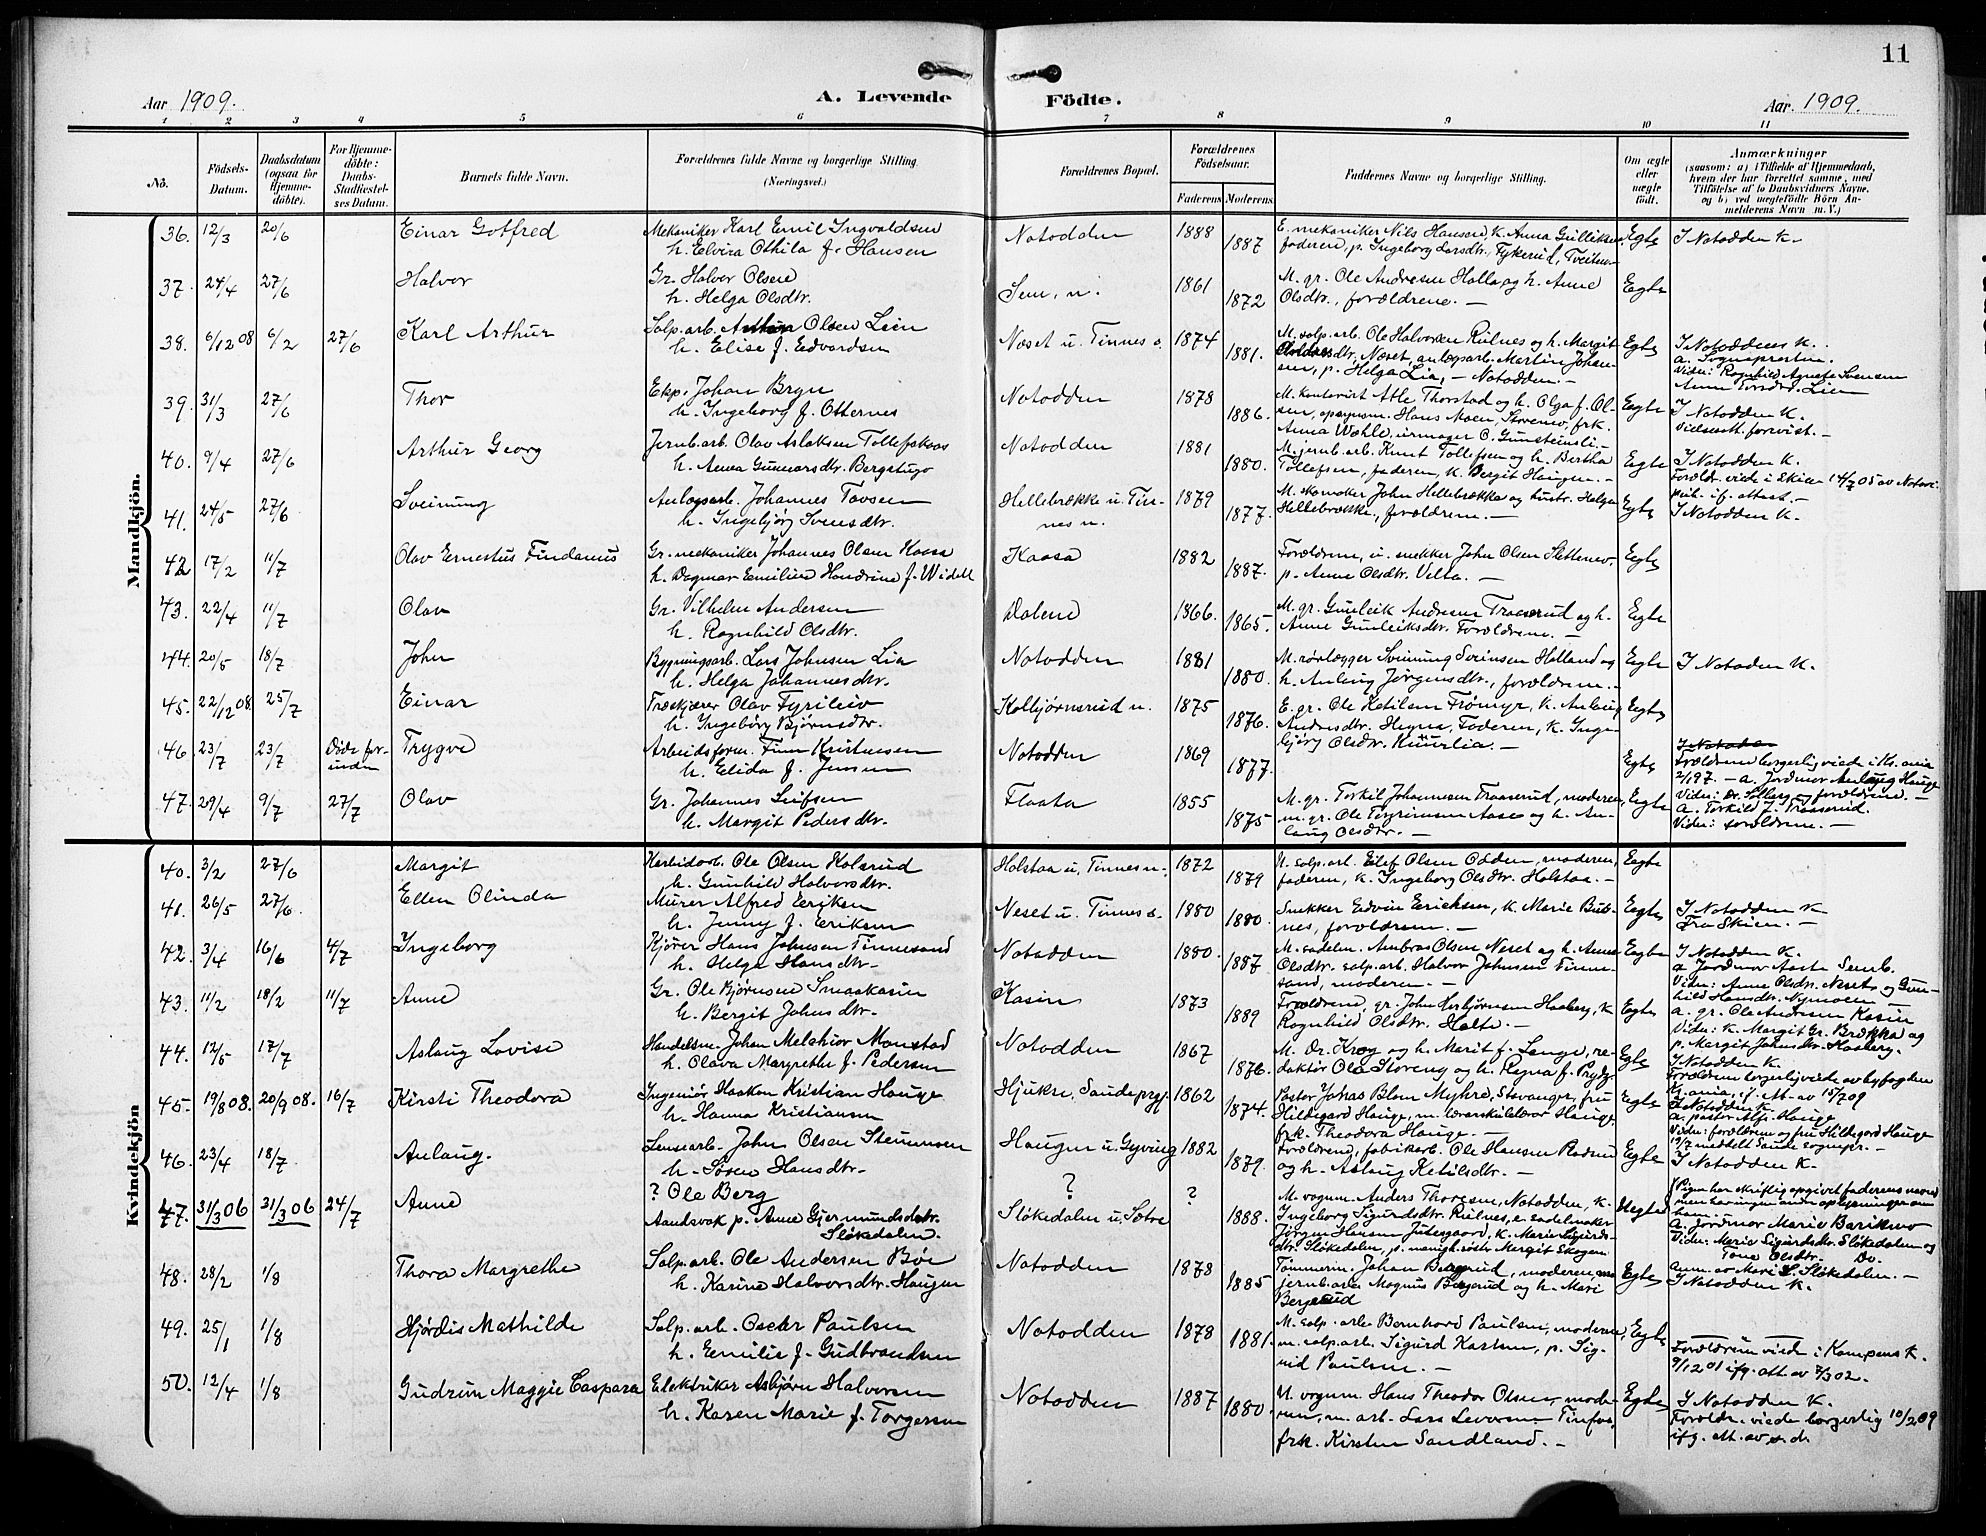 11
Aar 1909.
A. Levende
Födte.
Aar 1909.
1 2 3 4 5 6 7 8 9 10 11
No.
Födsels-Datum.
Daabsdatum (ogsaa for Hjemmedöbte).
For Hjemmedöbte: Daabs-Stadfæstelses Datum.
Barnets fulde Navn.
Forældrenes fulde Navne og borgerlige Stilling. (Næringsvei.)
Forældrenes Bopæl.
Forældrenes Födselsaar.
Faderens Moderens
Faddernes Navne og borgerlige Stilling.
Om ægte eller uægte födt.
Anmærkninger
(saasom: a) i Tilfælde af Hjemmedaab,
hvem der har forrettet samme, med
Tilföielse af to Daabsvidners Navne.
og b) ved uægtefödte Börn An-
melderens Navn m. V.)
Mandkjön.
36. 12/3 20/6 Einar Gotfred Mekaniker Karl Emil Ingvaldsen
h. Elvira Othila f. Hansen Notodden 1888 1887 E. mekaniker Nils Hansen, k. Anna Gulliksen
faderen, p. Ingeborg Larsdtr. Tykerud, Tveiten.— Egte I Notodden K.
37. 24/4 27/6 Halvor Gr. Halvor Olsen
h. Helga Olsdtr. Sem, n. 1861 1872 M. gr. Ole Andresen Holla og h. Anne
Olsdtr., forældrene. — Egte
38. 6/12 08 6/2 27/6 Karl Arthur Salp.arb. Olsen Lien
h. Elise f. Edvardsen Næset u. Tinnes s. 1874 1881. M. salp.arb. Ole Halvorsen Rulnes og h. Margit
Næset, anlægsarb. Martin Johan-
sen, p. Helga Lia, — Notodden. — Egte I Notoddens K.
a. Sogneprosten.
Vidn: Ragnhild Agnete Svensen
Anne Torsdtr. Lien
39. 31/3 27/6 Thor Exp. Johan Bryn
h. Ingeborg f. Otternes Notodden 1878 1886. M. kontorist Atle Thorstad og h. Olga f. Ol-
sen, Hans Moen, Storemo, frk.
Anna Wahle, urmager O. Gunsteinsli — Egte I Notodden K.
Vielsesatt. forevist. —
40. 9/4 27/6 Arthur Georg Jernb.arb. Olav Aslaksen Tollefskaas
h. Anna Gunnarsdtr. Bergstugo Notodden 1881 1880. M. jernb.arb. Knut Tollefsen og h. Bertha
Tollefsen, faderen, k. Bergit Haugen. — Egte I Notodden K.
Foreldr. viede i Skien 14/7 05 av Notari.
pub. if. attest. —
41. 24/5 27/6 Sveinung Anlægsarb. Johannes Tovsen
h. Ingebjörg Svensdtr. Hellebrække u. Tin-
nes n. 1879 1877. M. skomaker John Hellebrække og hustr. Helga
Hellebrække, forældrene. — Egte I Notodden K.
42 17/2 11/7 Olav Ernestus Findanus Gr. mekaniker Johannes Olsen Kaasa
h. Dagmar Emilie Hendrine f. Widell Kaasa 1882 1887. Forældrene, u. snekker John Olsen Slettemo,
p. Anne Olsdtr. Velta. — Egte
43. 22/4 11/7 Olav Gr. Vilhelm Andersen
h. Ragnhild Olsdtr. Dalene 1866 1865. M. gr. Gunleik Andresen Traaserud og h.
Anne Gunleiksdtr. Forældrene. — Egte
44. 20/5 18/7 John Bygningsarb. Lars Johnsen Lia
h. Helga Johannesdtr. Notodden 1881 1880. M. rørlægger Sveinung Sveinsen Holland og
h. Anlaug Jørgensdtr., forældrene. — Egte I Notoden K.
45. 22/12 08. 25/7 Einar Træskjærer Olav Fyrileiv
h. Ingebörg Björnsdtr. Kolbjørnsrud n. 1875 1876. E. gr. Ole Ketilsen Frømyr, k. Anlaug
Andresdtr. Heyna, Faderen, k. Inge-
björg Olsdtr. — Egte
46 23/7 23/7 Døde for-
inden Trygve Arbeidsform. Finn Kristensen
h. Elida f. Jensen Notodden 1869 1877. Egte I Notoden
Forældrene borgerlig viede i Kr.ania
2/1 97. — a. Jordmor Anlaug Hauge
Vidn: Dr. Solberg og forældrene. —
47. 29/4 9/7 27/7 Olav Gr. Johannes Leifsen
h. Margit Pedersdtr. Flaata 1855 1875 M. gr. Torkil Johannesen Traaserud, moderen,
m. gr. Ole Torgrimsen Aase og h. An-
laug Olsdtr. — Egte a. Torkild J. Traaserud.
Vidn: forældrene. —
Kvindekjön
40. 3/2 27/6 Margit Karbidarb. Ole Olsen Holsrud
h. Gunhild Halvorsdtr. Holstaa u. Tinnes n. 1872 1879 U. salp.arb. Eilef Olsen Odden, moderen,
faderen, k. Ingeborg Olsdtr. Holstaa. — Egte
41. 26/5 27/6. Ellen Olinda Murer Alfred Eriksen
h. Jenny f. Eriksen Neset u. Tinnes s. 1880 1880. Snekker Edvin Erichsen, k. Marie Bub-
nes, forældrene. — Egte I Notodden K
Fra Skien. —
42. 3/4 16/6 4/7 Ingeborg Kjører Hans Johnsen Tinnesand
h. Helga Hansdtr. Notodden 1880. 1887 M. sadelm. Ambros Olsen Neset og h. Anne
Olsdtr. salp.arb. Halvor Johnsen Tinne-
sand, moderen. — Egte I Notodden K.
a Jordmor Aaste Semb.
Vidn: Anne Olsdtr. Neset og Gun-
hild Hansdtr. Nymoen —
43. 11/2 18/2 11/7 Anne Gr. Ole Bjørnsen Smaakasin
h. Bergit Johnsdtr. Kasin 1873 1889 Forældrene, gr. John Herbjørnsen Haaberg, k.
Ragnhild Olsdtr. Holte. — Egte a. gr. Ole Andresen Kasin
Vidn: k. Margit Gr. Brækka og
p. Margit Johnsdtr. Haaberg.
44. 12/5 17/7 Aslaug Lovise Handelsm. Johan Melchior Monstad
h. Olava Margrethe f. Pedersen Notodden 1867 1876. M. Dr. Krog og h. Marit f. Lange, re-
daktør Ola Storeng og h. Regna f. Prydz. Egte I Notodden K.
Forældrene borgerlig viede av byfogden
Kr.ania, if. att. av 15/7 09
45. 19/8 08. 20/9 08. 16/7 Kirsti Theodora Ingeniør Haakon Kristian Hauge
h. Hanna Kristiansen Hjukse, Saude prgj. 1862 1874. Pastor Johas Blom Myhre, Stavanger, fru
Hildegard Hauge, m. Hauge,
frk. Theodora Hauge. — Egte I Notodden K.
a. pastor Alf. Hauge
Vidn: forældrene og fru Hildegard Hauge
19/7 meddelt Saude sognepr. —
46. 23/4 18/7 Anlaug. Lensearb. John Olsen Steinmoen
h. Søren Hansdtr. Haugen u. Gyvring 1882 1879. Forældrene, fabrikarb. Ole Hansen Rodmu
og h. Aslaug Ketilsdtr. — Egte I Notodden K.
47. 31/3 06 31/3 06 24/7 Anne ? Ole Berg
Aandsvak p. Anne Gjermundsdtr.
Sløkedalen. ?
Sløkedalen u. Sætre ? 1888. M. vognm. Anders Thoresen, Notodden, k.
Ingeborg Sigurdsdtr. Rulnes, e. sadelmaker
Jørgen Hansen Juvesgaard, k. Marie Sigurds-
dtr. Sløkedalen, p. Margit Skogen Uegte (Pigen har skriftlig opgivet faderens navn
men har ingen andre oplysninger om
ham.
a. Jordmor Marie Barikmo
Vidn: Marie Sigurdsdtr. Sløkedalen og
Tone Olsdtr. Do.
Anm. av Mari S. Sløkedalen. —
48. 28/2 1/8 Thora Margrethe Salp.arb. Ole Andersen Bøe
h. Karine Halvorsdtr. Haugen Notodden 1878 1885 Tømmerm. Johan Bergerud, moderen, m.
jernb.arb. Magnus Bergerud og h. Mari
Bergerud Egte I Notodden K.
49. 25/1 1/8 Hjördis Mathilde Salp.arb. Oscar Paulsen
h. Emilie f. Gudbrandsen Notodden 1878 1881. M. salp.arb. Bernhard Paulsen, moderen,
m. salp.arb. Sigurd Karlsen, p. Sig-
rid Paulsen. — Egte Forældrene viede i Kampens K.
9/12 01 ifg. att. av 7/3 02. —
50. 12/4 1/8 Gudrun Maggie Caspara Elektriker Asbjørn Halvorsen
h. Karen Marie f. Torgersen Notodden 1887 1880. U. vognm. Hans Theodor Olsen, mode-
ren, m. arb. Lars Leversen Tinfos,
frk. Kirsten Sandland. — Egte I Notodden K.
Foreldr. viede borgerlig 10/2 09
ifg. att. av s.d.